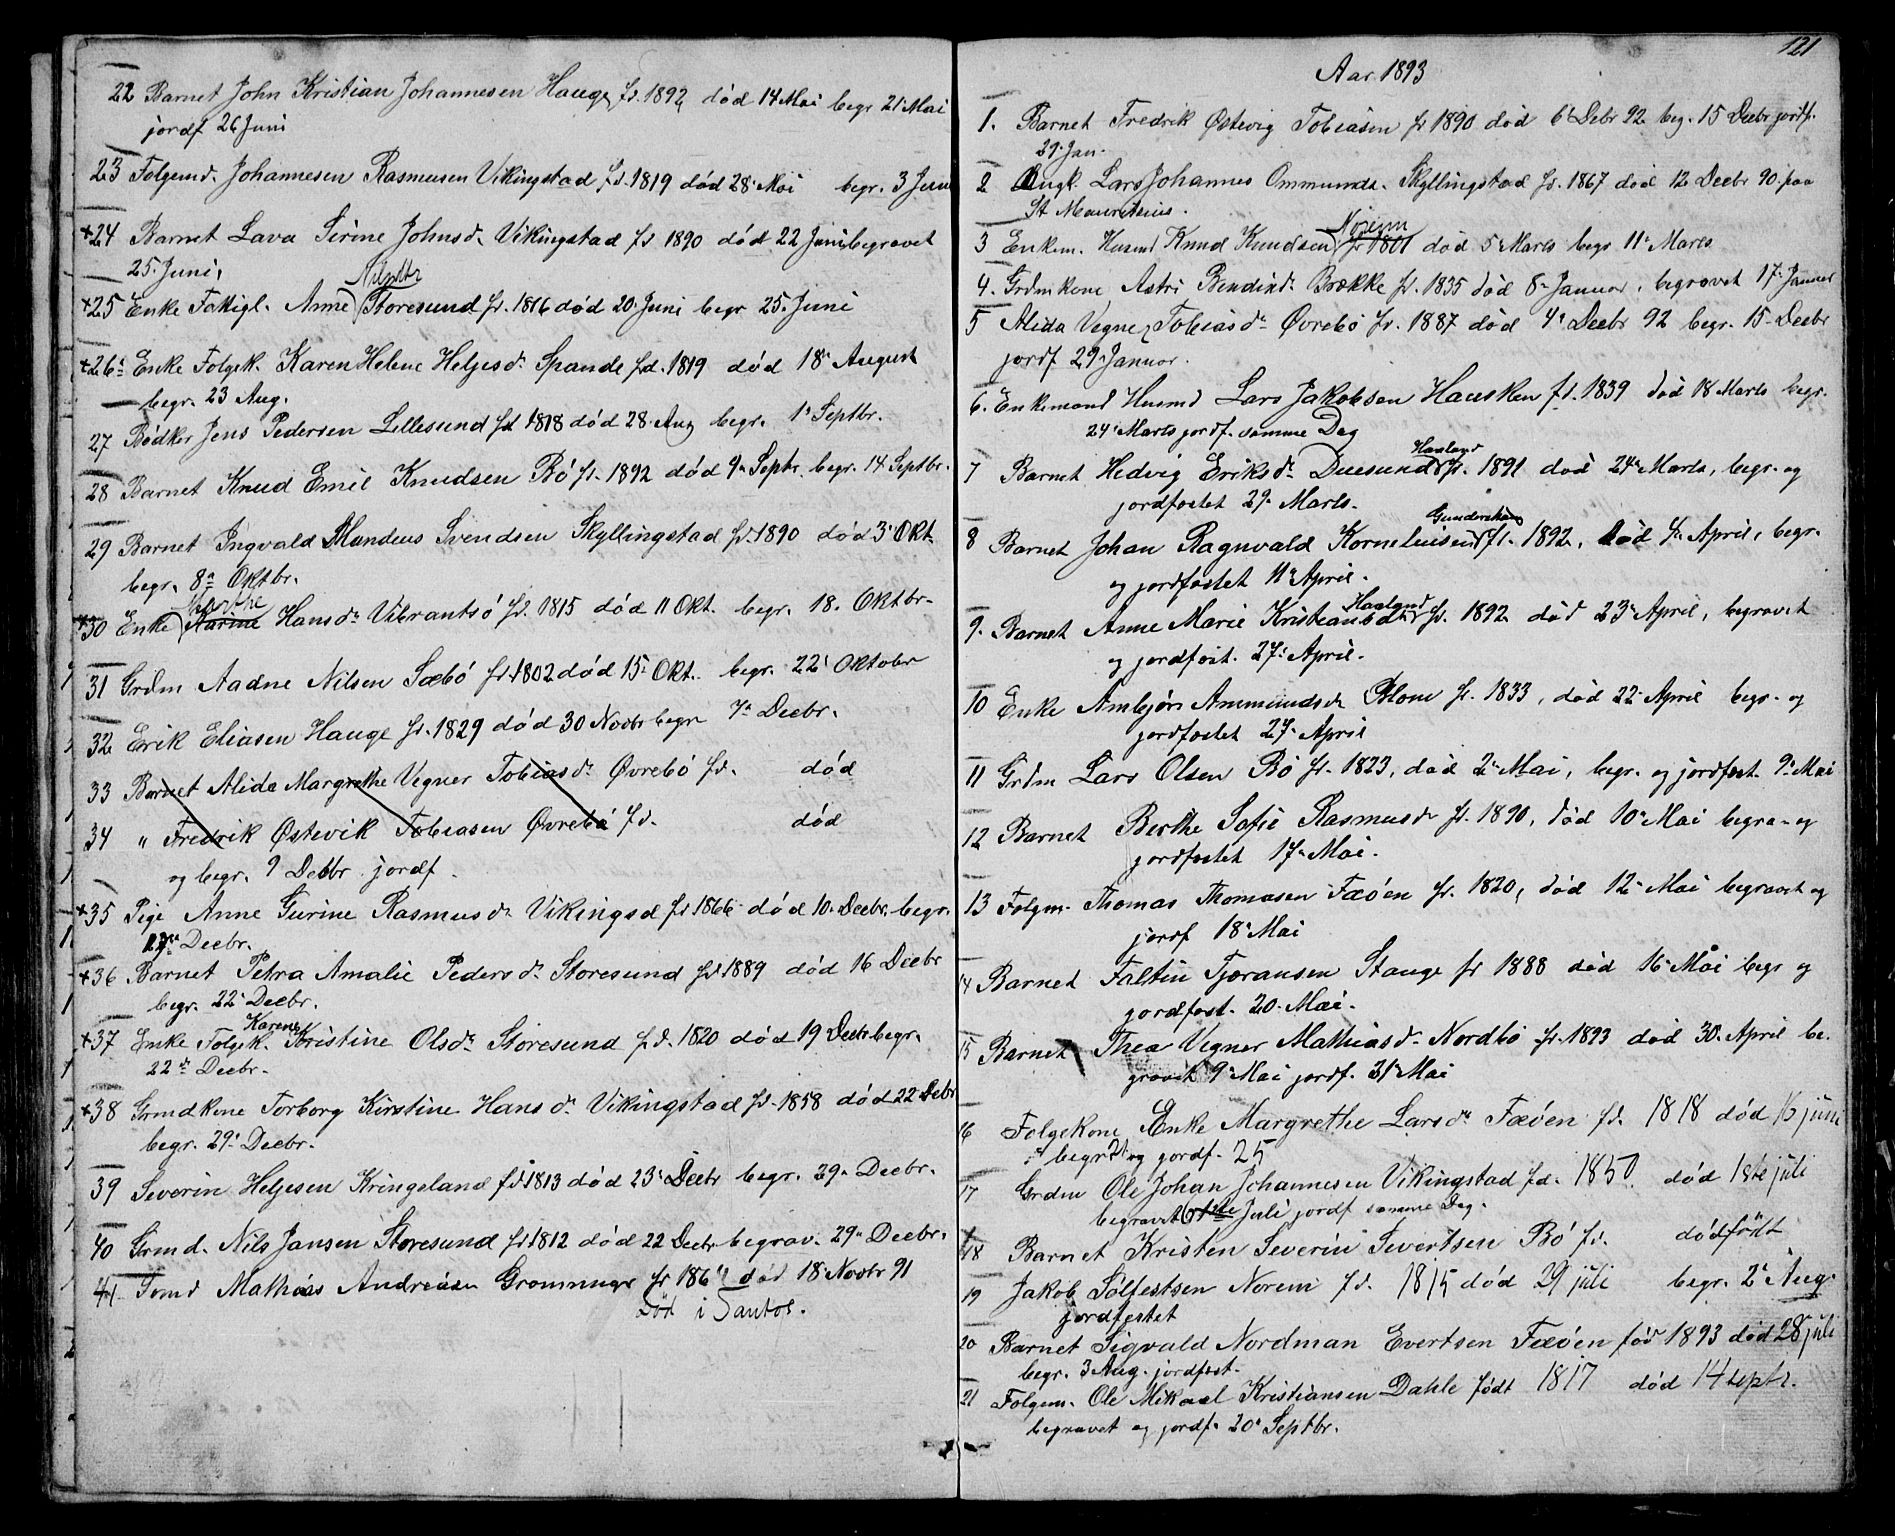 22 Barnet John Kristian Johannesen Hauge fd. 1892 död 14 Mai begr 21 Mai
jordf 26 Juni
23 Folgemd. Johannesen Rasmusen Vikingstad fd. 1819 död 28 Mai begr. 3 Juni
+24 Barnet Lava Serine Johnsdr Vikingstad fd 1890 död 22 Juni begravet
25 Juni,
Nilsdtr
+25 Enke Fattigl. Anne Storesund fr. 1816 död 20 Juni begr 25 Juni
+26 Enke Folgek. Karen Helene Helgesdr Spande fd. 1819 död 18 August
begr. 23 Aug.
27 Bödker Jens Pedersen Lillesund fd 1818 död 28 Aug begr. 1 Septbr.
28 Barnet Knud Emil Knudsen Bö fr. 1892 död 9 Septr. begr. 14 Septbr.
29 Barnet Ingvald Mandeus Svendsen Skyllingstad fd. 1890 död 3 Okt
begr. 8 Oktbr.
Marthe
+30 Enke Karine Hansdr Vibrantsö fd. 1815 död 11 Okt. begr. 18. Oktbr.
31 Grdm Aadne Nilsen Sæbö fr. 1802 död 15 Okt. begr. 22 Oktober
32 Erik Eliasen Hauge fr. 1829 död 30 Novbr begr 7 Decbr.
33 Barnet Alida Margrethe Vegner Tobiasdr Övrebö fd. död
34 " Fredrik Östevik Tobiasen Övrebö fd. död
og begr. 9 Decbr jordf.
+35 Pige Anne Gurine Rasmusdr Vikingsd fr 1866 död 10. Decbr. begr.
17 Decbr.
+36 Barnet Petra Amalie Pedersdr Storesund fd. 1889 död 16 Decbr
begr. 22 Decbr.
Karene
+37 Enke Folgek. Kristine Olsdr Storesund fd. 1820 död 19 Decbr begr.
22 Decbr.
+38 Grmdkone Torborg Kirstine Hansdr Vikingstad fd. 1858 död 22 Decbr
begr. 29 Decbr.
39 Severin Helgesen Kringeland fd. 1813 död 23 Decbr begr. 29 Decbr.
40 Grmd. Nils Jansen Storesund fr 1812 död 22 Decbr begrav. 29 Decbr.
41 Mathias Andreasen död 18 Novbr 91
Död i Santos.
121
Aar 1893
1. Barnet Fredrik Östevig Tobiasen fr 1890 död 6 Debr 92 beg. 15 Decbr jordf.
29. Jan.
2 Ungk. Lars Johannes Ommunds. Skyllingstad fr. 1867 död 12 Decbr 90 paa
St Mauritius.
Noreim
3 Enkem. Husmd Knud Knudsen fr 1801 död 5 Marts begr 11 Marts
4. Grdmkone Astri Bendiksdr Brække fr. 1835 död 8 Januar, begravet 17 Januar
5 Alida Vegne Tobiasdr Övrebö fr. 1887 död 4 Decbr 92 begr. 15 Decbr
jordf 29 Januar.
6. Enkemand Husmd Lars Jakobsen Hausken fd. 1839 död 18 Marts begr.
24 Marts jordf. samme Dag
Haaland
7 Barnet Hedvig Eriksdr Duesund fr. 1891 död 24 Marts, begr. og
jordfæstet 29 Marts.
Gundershaug
8 Barnet Johan Ragnvald Korneliusen fr. 1892, död 4 April, begr.
og jordfæstet 11 April.
Haaland
9. Barnet Anne Marie Kristiansdtr fd. 1892 död 23 April, begravet
og jordfæst. 27 April.
10 Enke Ambjör Ammundsdr Blom fr. 1833, död 22 April begr. og
jordfæstet 27 April
11 Grdm Lars Olsen Bö fr. 1823, död 2 Mai, begr. og jordfæst. 9 Mai
12 Barnet Berthe Sofie Rasmusdr fr. 1890, död 10 Mai begra. og
jordfæstet 17 Mai.
13 Folgm. Thomas Thomasen Fæöen fr. 1820, död 12 Mai begravet og
jordf 18 Mai
14 Barnet Faltin Tjöransen Stange fr 1888 död 16 Mai begr og
jordfæst. 20. Mai.
15 Barnet Thea Vegner Mathiasdr Nordbö fr. 1893 död 30. April be-
gravet 9 Mai jordf. 31 Mai
16 Folgekone Enke Margrethe Larsdr Fæöen fd. 1818 död 16 juni
begr 21 og jordf. 25
17 Grdm Ole Johan Johannesen Vikingstad fd. 1850 död 1ste juli
begravet 6 Juli jordf samme Dag.
18 Barnet Kristen Severin Sivertsen Bö fd. dödfödt
19 Jakob Solfestsen Noreim fd. 1815 död 29 juli begr. 2 Aug.
jordfæstet
20 Barnet Sigvald Nordman Evertsen Fæöen föd 1893 död 28 juli
begr. 3 Aug. jordfæst.
21 Folgem. Ole Mikael Kristiansen Dahle födt 1817 död 14 septr.
begravet og jordf. 20 Septbr.